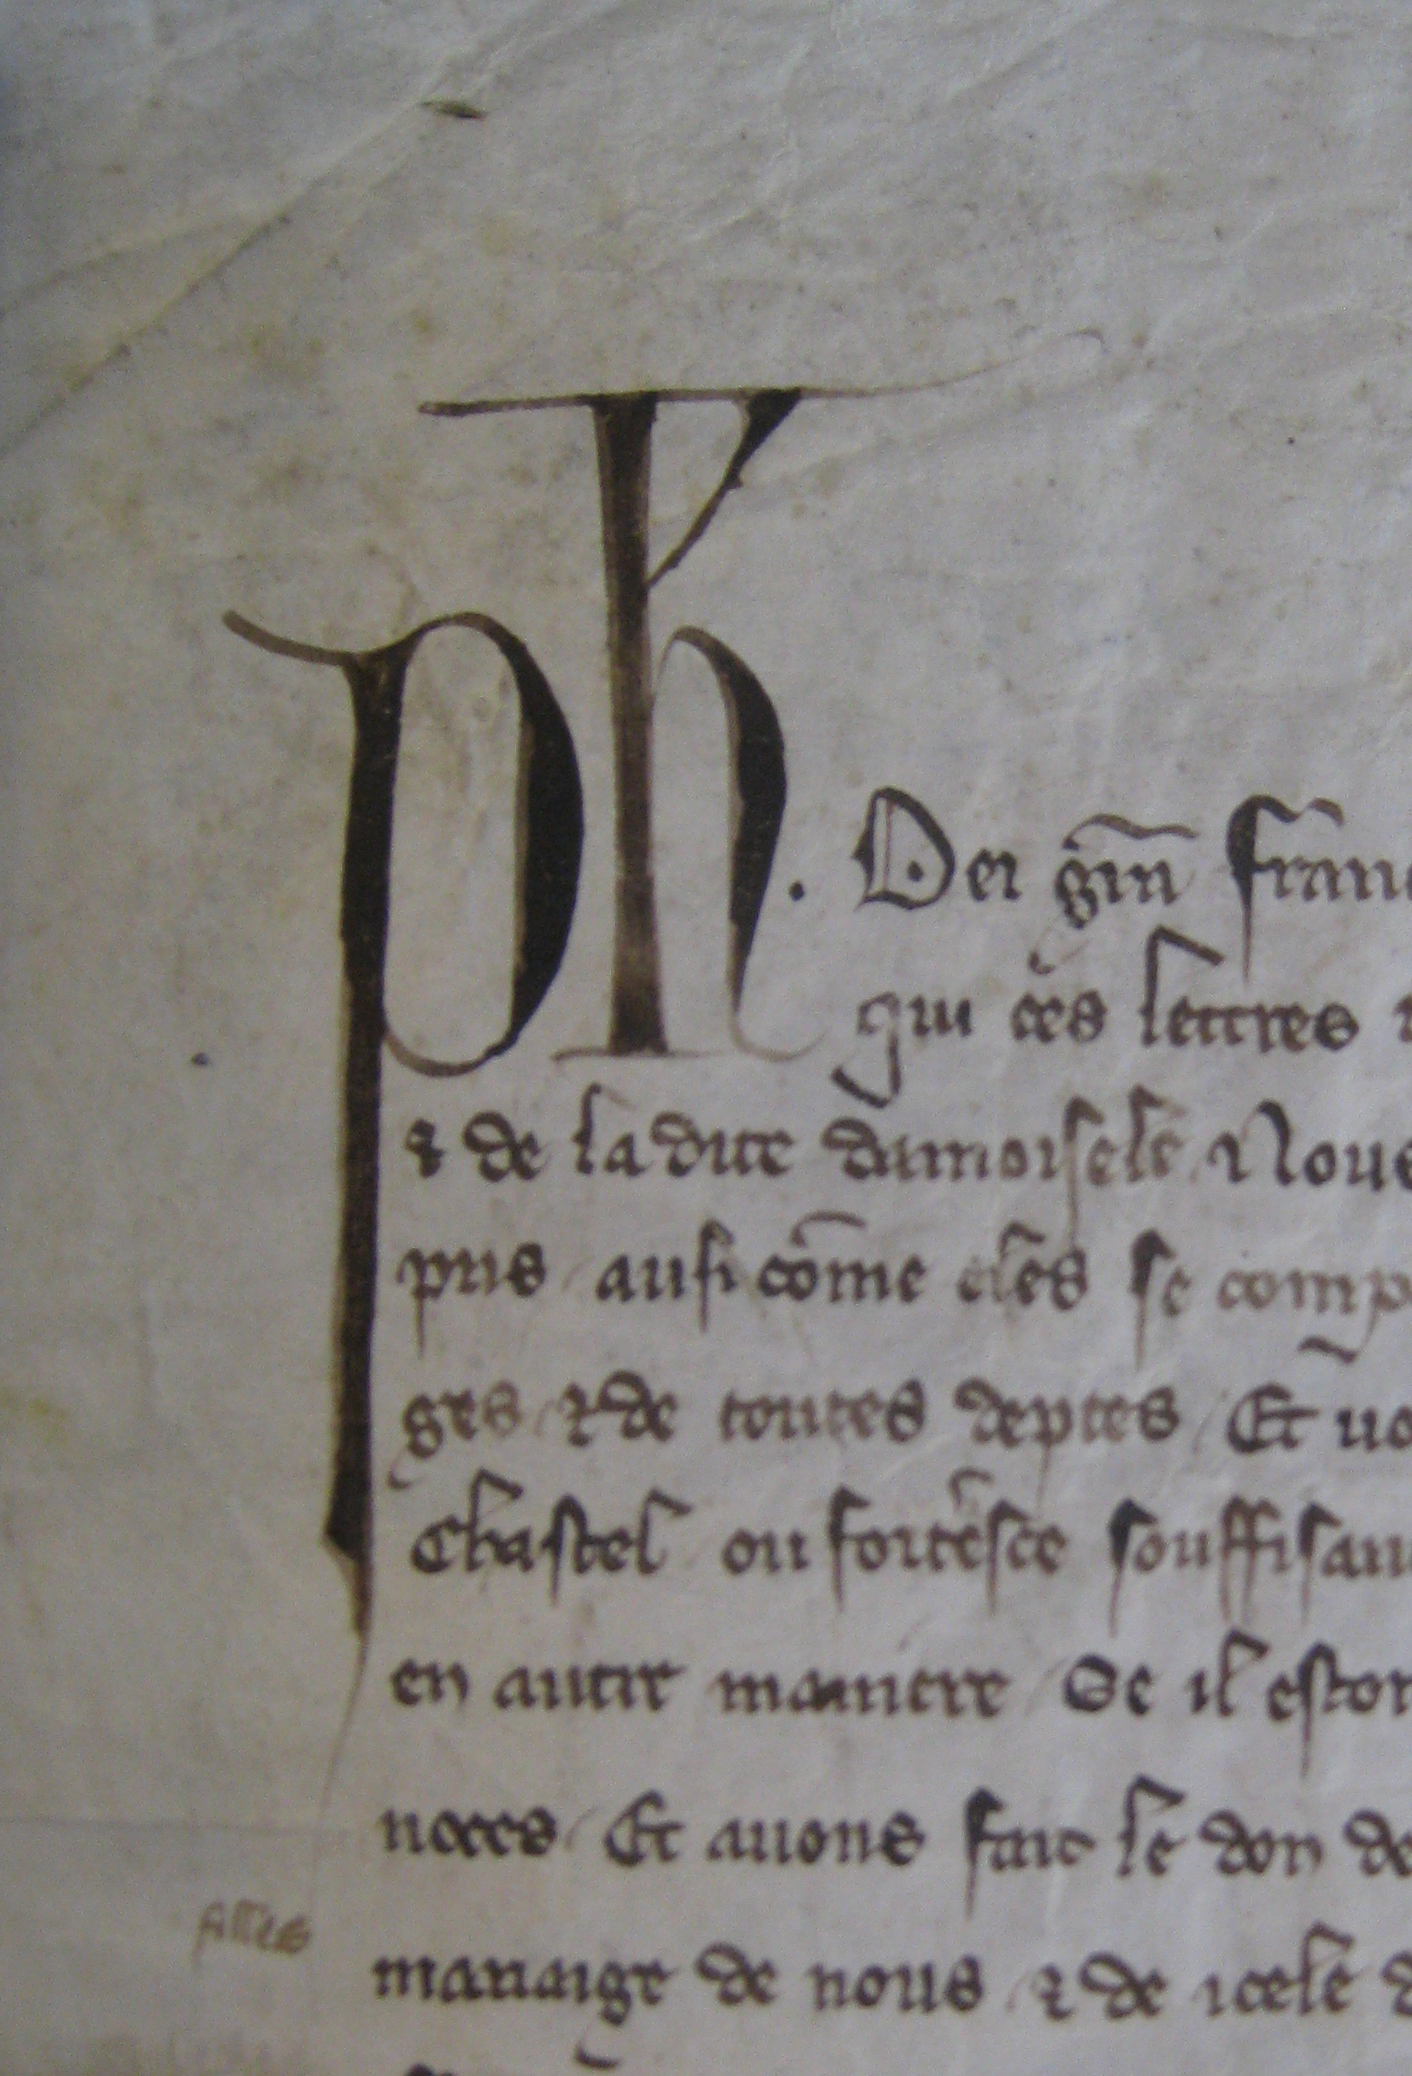 Ph. Dei grã franc
qui ces lettres
& de la dite damoisele Nous
pris ausi cõme eles se comp
ges & de toutes deptes Et uo
Chastel ou forteresce souffisan
en autre maniere Se il estoi
noces Et auons fait le don de
mariaige de nous & de icele d